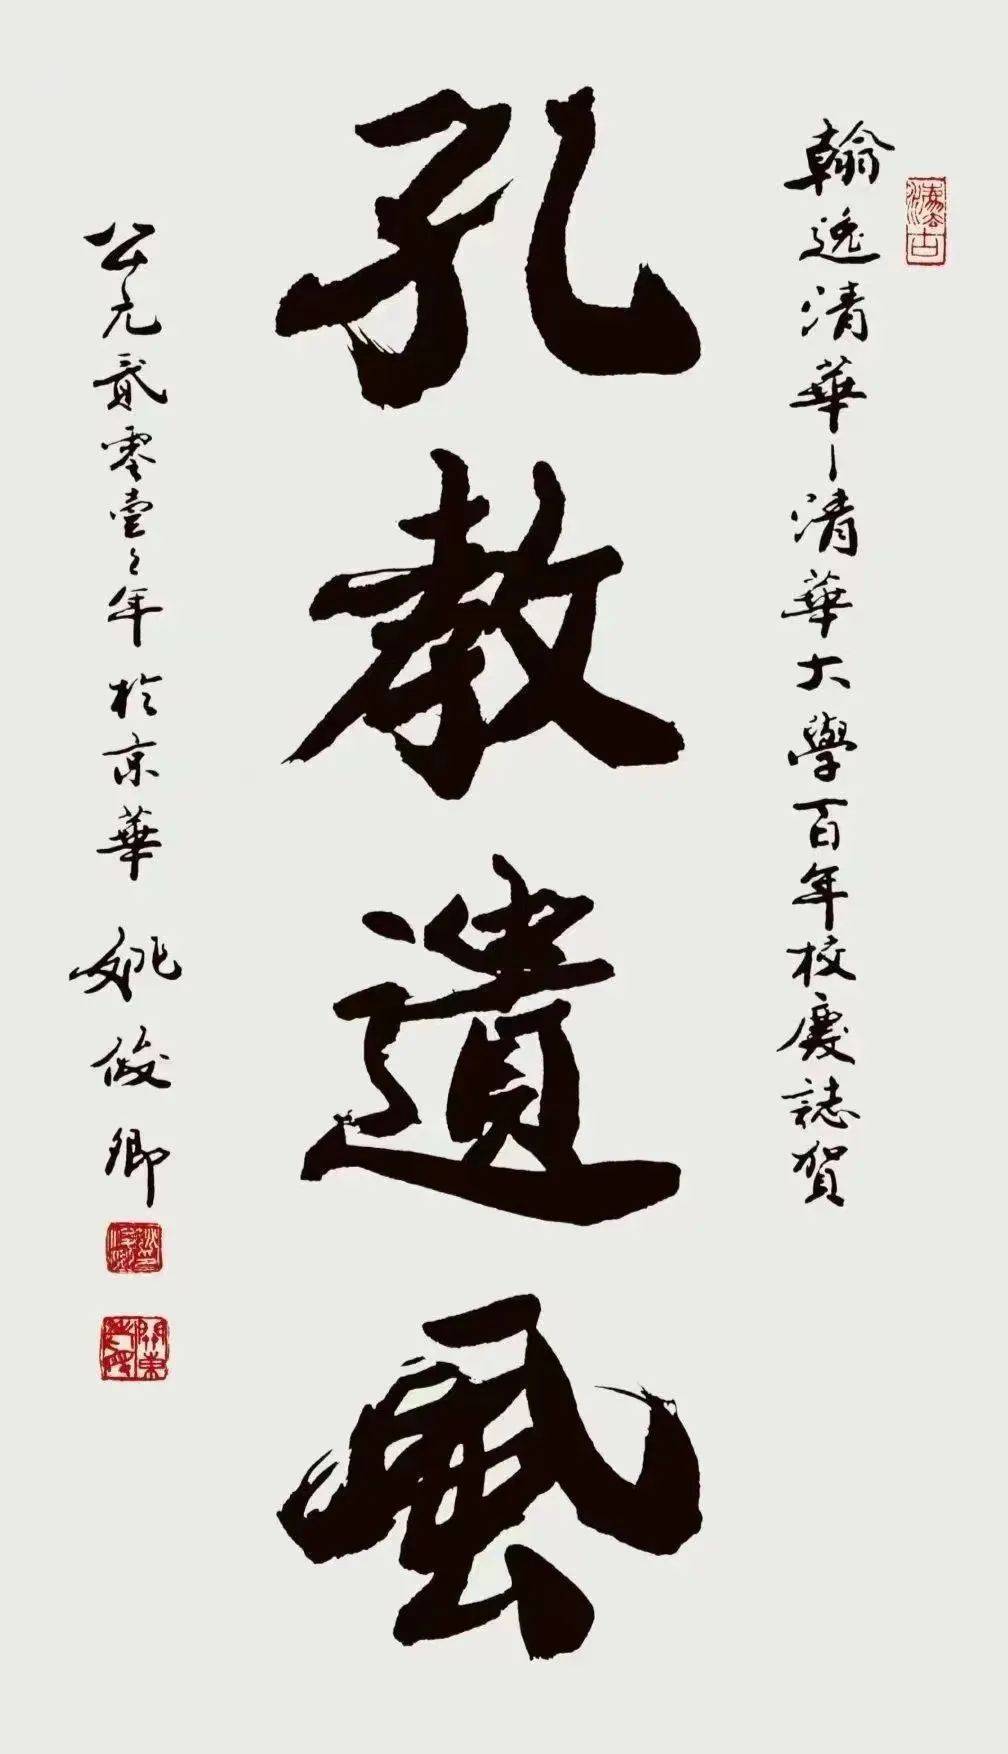 翰逸清華—清華大學百年校慶誌賀
孔教遺風
公元貳零壹壹年於京華 姚俊卿
關東